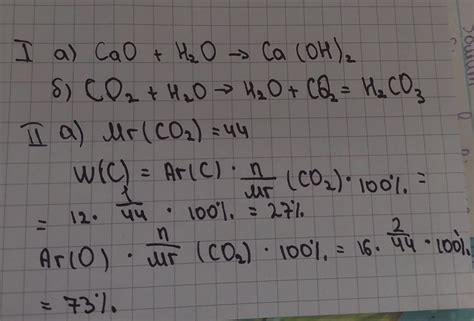 I а) CaO + H₂O → Ca(OH)₂
б) CO₂ + H₂O → H₂O + CO₂ = H₂CO₃
II а) Mr(CO₂) = 44
W(C) = Ar(C) · n/Mr (CO₂) · 100% =
= 12 · 1/44 · 100% = 27%
Ar(O) · n/Mr (CO₂) · 100% = 16 · 2/44 · 100%
= 73%.